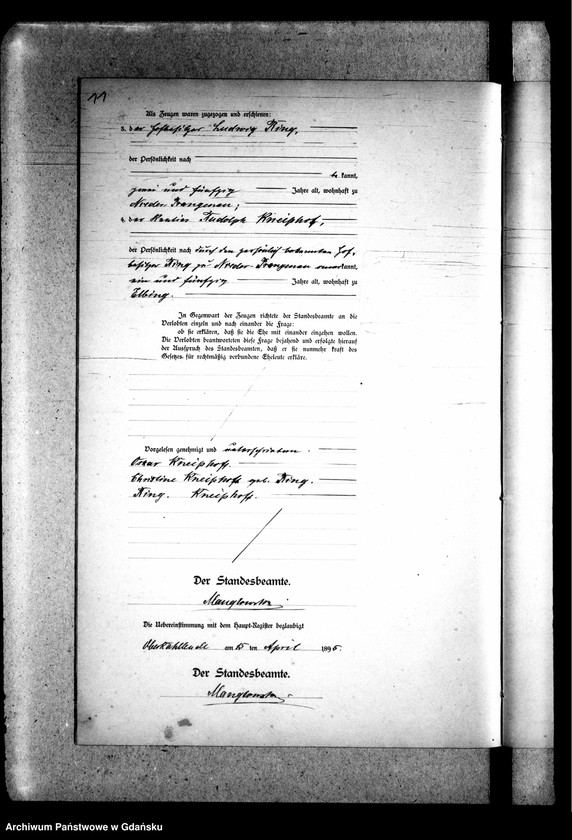 11
Als Zeugen waren zugezogen und erschienen:
3. der Hofbesitzer Ludwig Ring,
der Persönlichkeit nach
be kannt,
zwei und fünfzig Jahre alt, wohnhaft zu
Nieder Prangenau;
4. der Rentier Rudolph Kneiphof,
der Persönlichkeit nach durch den persönlich bekannten Hof-
besitzer Ring zu Nieder Prangenau anerkannt,
ein und fünfzig Jahre alt, wohnhaft zu
Elbing.
In Gegenwart der Zeugen richtete der Standesbeamte an die
Verlobten einzeln und nach einander die Frage:
ob sie erklären, daß sie die Ehe mit einander eingehen wollen.
Die Verlobten beantworteten diese Frage bejahend und erfolgte hierauf
der Ausspruch des Standesbeamten, daß er sie nunmehr kraft des
Gesetzes für rechtmäßig verbundene Eheleute erkläre.
Vorgelesen, genehmigt und unterschrieben.
Oscar Kneiphoff.
Christine Kneiphoff geb. Ring.
Ring. Kneiphoff.
Der Standesbeamte.
Die Uebereinstimmung mit dem Haupt-Register beglaubigt
am 15 ten April 1896.
Der Standesbeamte.
Archiwum Państwowe w Gdańsku